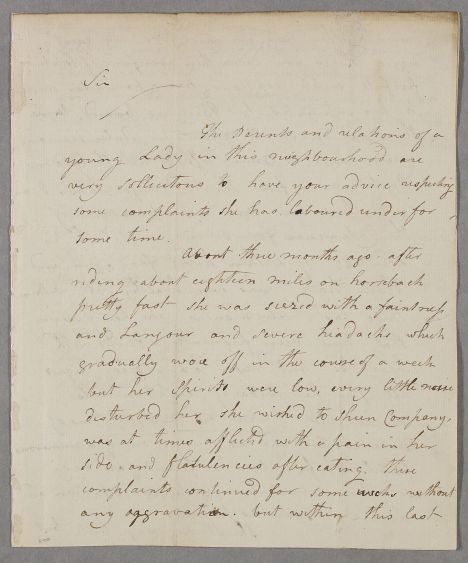 Sir
The Parents and relations of a
young Lady in this neighbourhood are
very sollicitous to have your advice respecting
some complaints she has laboured under for
some time.
About three months ago after
riding about eighteen miles on horseback
pretty fast she was siezed with a faintness
and Langour and severe headachs which
gradually wore off in the course of a week
but her Spirits were low, every little noise
disturbed her she wished to shun Company,
was at times afflicted with a pain in her
side and flatulencies after eating. these
complaints continued for some weeks without
any aggravation. but within this last